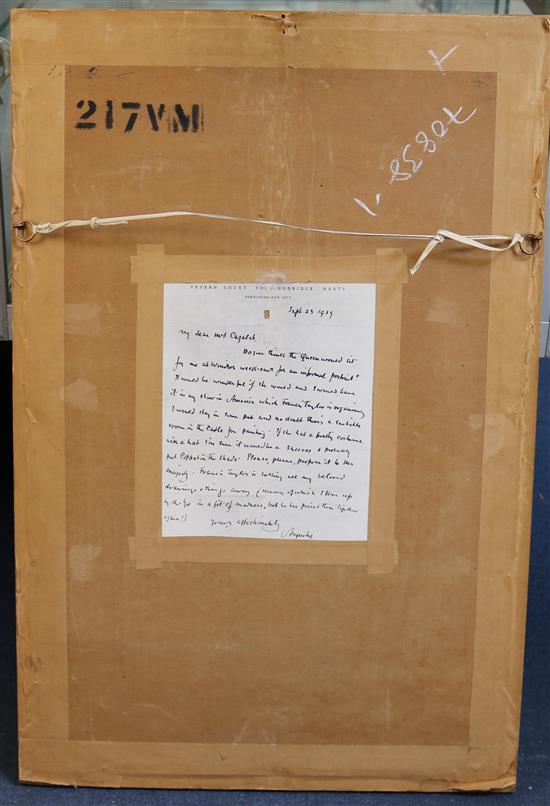 217VM
70838 1
X
FRYERN COURT FORDINGBRIDGE HANTS
FORDINGBRIDGE
Sept. 23 1939
My dear Mrs Cazalet
Do you think the Queen would sit
for me at Windsor week-ends for an informal portrait?
It would be wonderful if she would and I would have
it in my show in America which Francis Taylor is organising
I would stay in some pub and no doubt there's a suitable
room in the Castle for painting. If she has a pretty costume
with a hat I'm sure it would be a success & probably
put Poppet in the shade. Please, please, propose it to Her
Majesty. Francis Taylor is taking all my beloved
drawings & things away (many of which I tore up
years ago in a fit of madness, but he has pieced them together
again!)
Yours affectionately
Augustus